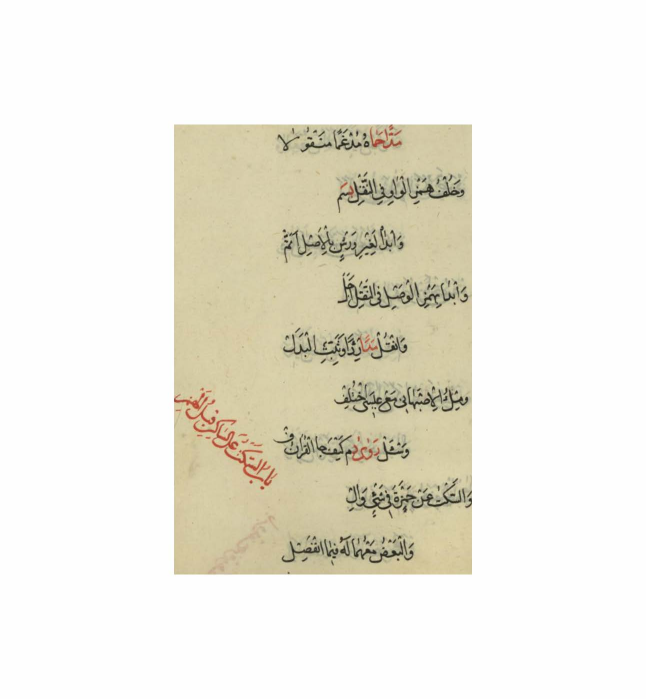 مَدًّا حَمَاهُ مُدْغَمًا مَنْقُولَا
وَخُلْفُ هَمْزِ الْوَاوِ فِي النَّقْلِ بَسَمْ
وَابْدَأْ لِغَيْرِ وَرْشٍ بِالْأَصْلِ أَتَمّْ
وَابْدَأْ بِهَمْزِ الْوَصْلِ فِي النَّقْلِ أَجَلّْ
وَانْقُلْ مَدًا رِدًا وَثَبْتَ الْبَدَلْ
وَمِلْءُ الْأَصْبَهَانِي مَعْ عِيسَى اخْتُلِفْ
وَسَلْ رَوَى دُمْ كَيْفَ جَا الْقُرَانُ دِفْ
باب السكت على الساكن قبل الهمز
وَالسَّكْتُ عَنْ حَمْزَةَ فِي شَيْءٍ وَأَلْ
وَالْبَعْضُ مَعْهُمَا لَهُ فِيمَا انْفَصَلْ